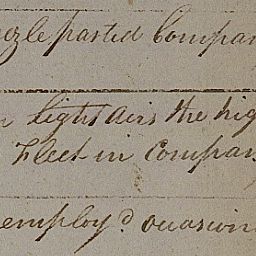 parted Compan
light airs the hig
Fleet in Compan
employ'd occasion